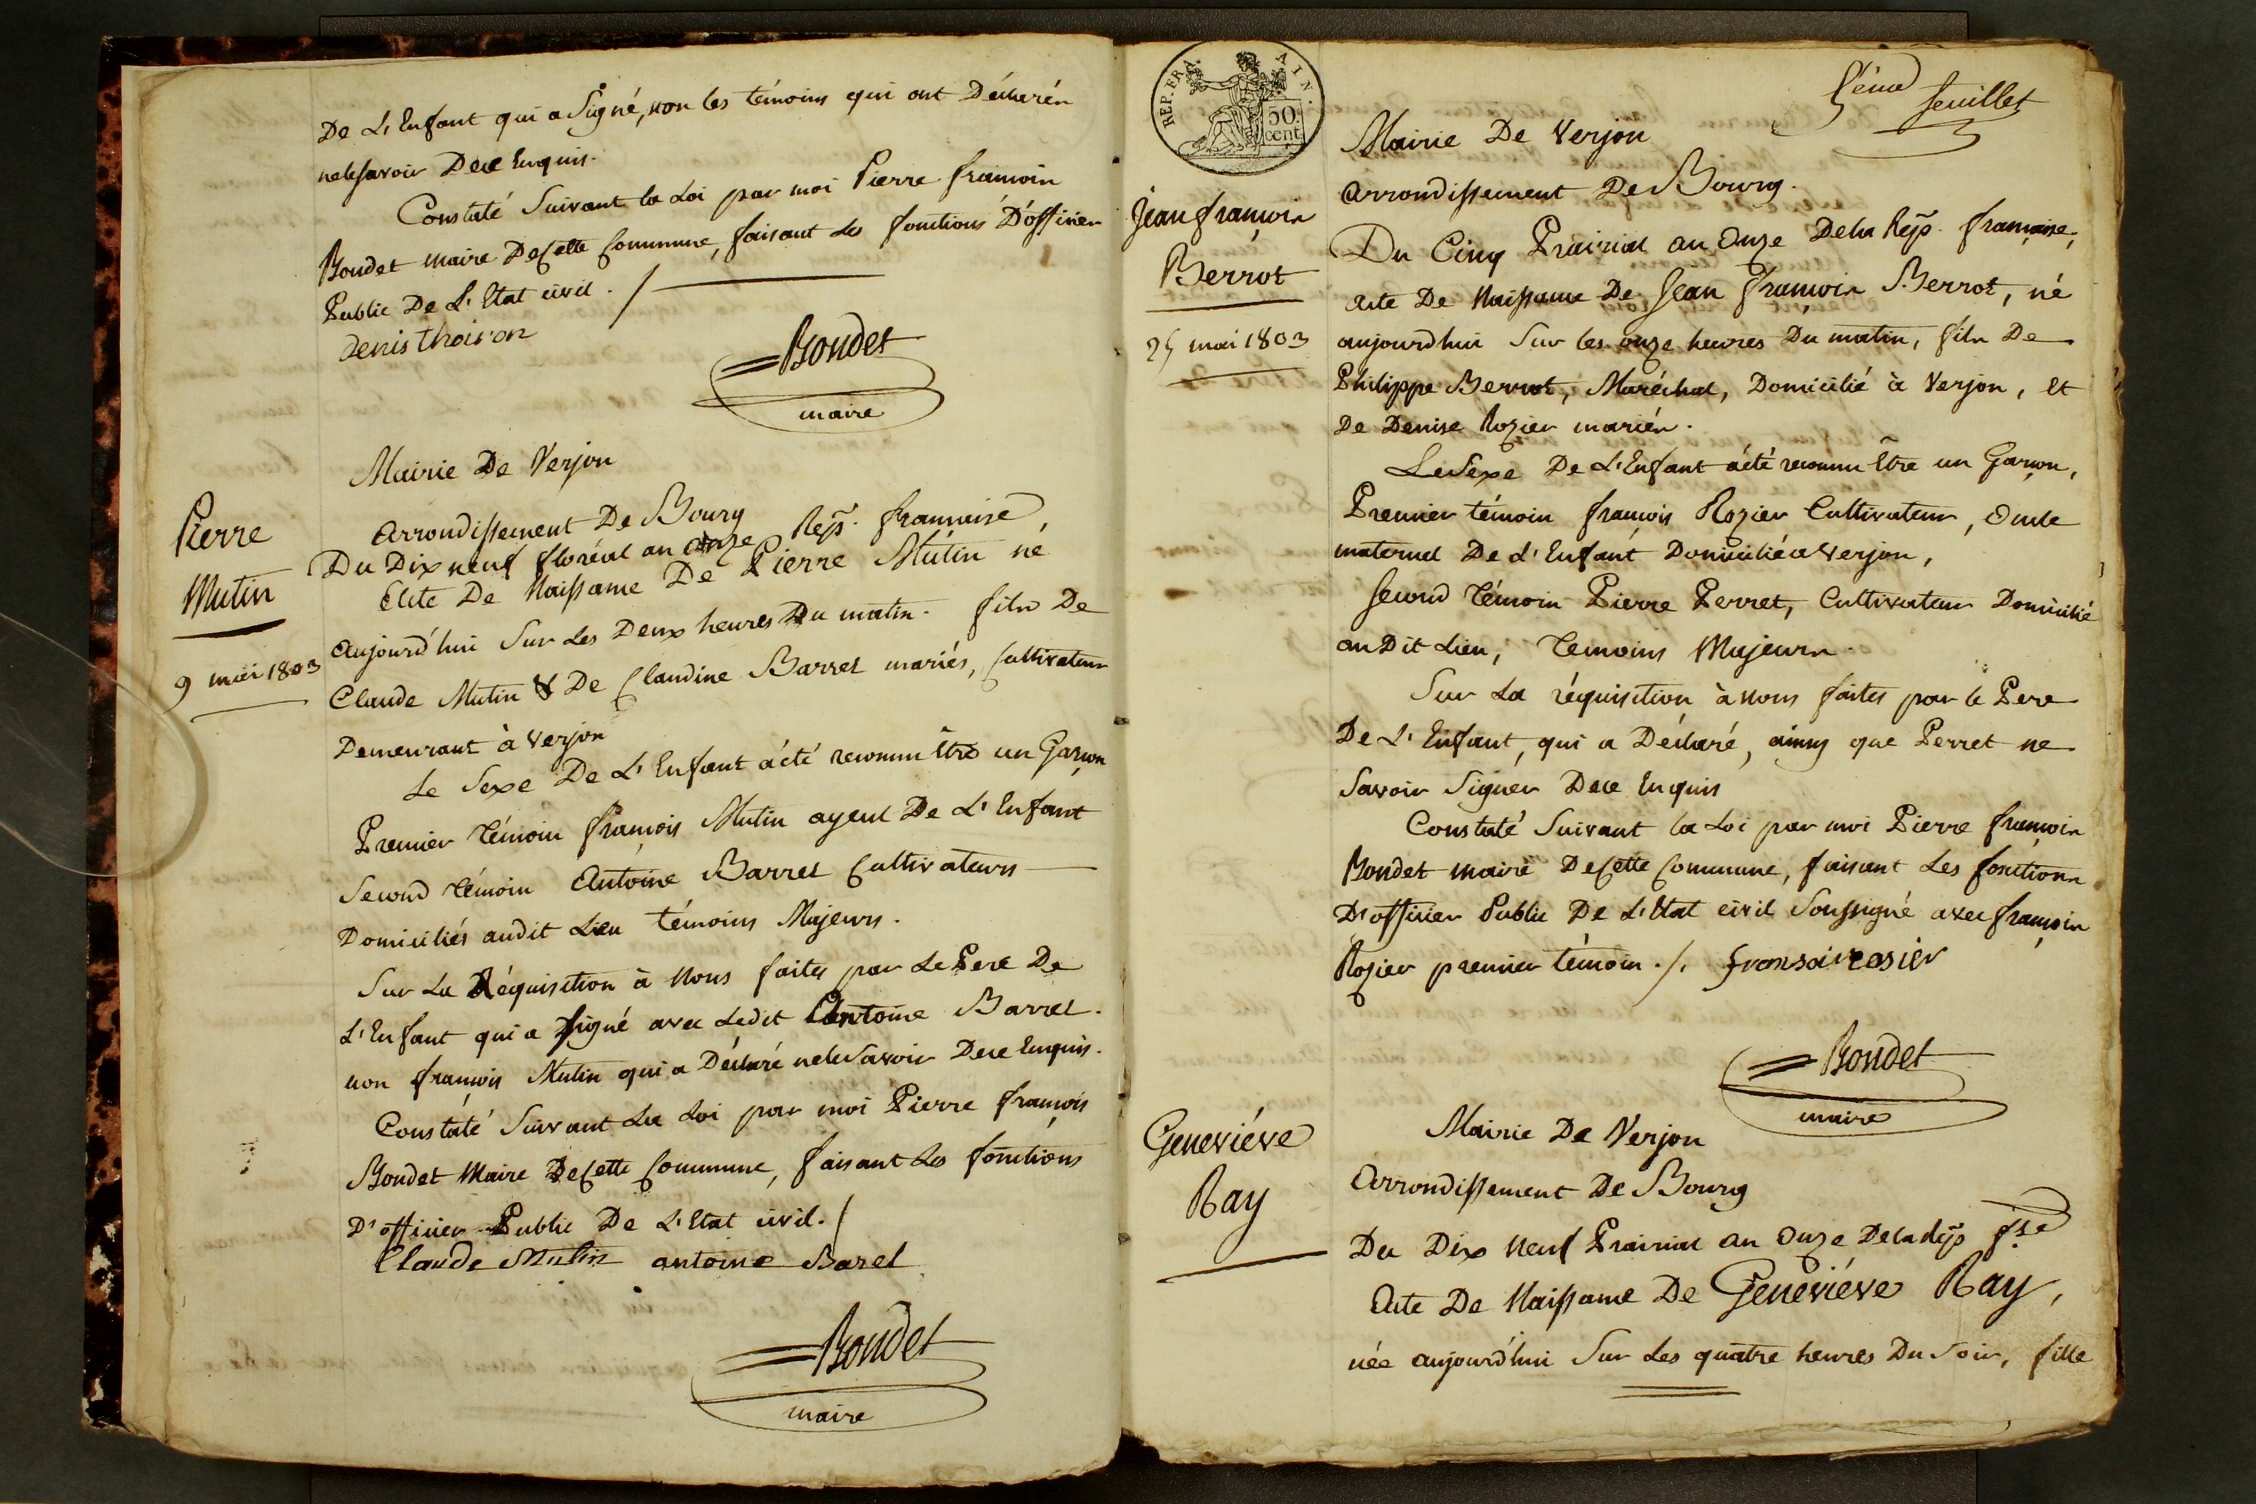 De L'Enfant qui a Signé, non les témoins qui ont Déclarés
nelesavoir Dece Enquis.
Constaté Suivant la Loi par moi Pierre françois
Bondet maire DeCette Commune, faisant Les fonctions D'officier
Public De L'Etat civil ./
Denis thoiron
Bondet
maire
Pierre
Mutin
9 mai 1803
Mairie De Verjon
arrondissement De Bourg
Du Dix neuf floréal an onze Rép. française,
Acte De Naissance De Pierre Mutin né
aujourd'hui Sur Les Deux heures Du matin. fils De
Claude Mutin & De Claudine Barret mariés, Cultivateur
Demeurant à Verjon
Le Sexe De L'Enfant a été reconnu Etre un Garçon
Premier témoin françois Mutin ayeul De L'Enfant
Second témoin Antoine Barret Cultivateurs
Domiciliés audit Lieu témoins Majeurs.
Sur La Réquisition à Nous faites par Le Pere De
L'Enfant qui a Signé avec Ledit Antoine Barret.
non françois Mutin qui a Déclaré neleSavoir Dece Enquis.
Constaté Suivant La Loi par moi Pierre françois
Bondet Maire DeCette Commune, faisant Les fonctions
D'officier Public De L'Etat civil./
Claude Mutin antoine Barel
Bondet
maire
REP. FRA. AIN.
50.
cent.
5éme feuillet
Jean françois
Berrot
25 mai 1803
Mairie De Verjon
arrondissement De Bourg.
Du Cinq Prairial an Onze Dela Rép. française,
acte De Naissance De Jean françois Berrot, né
aujourdhui Sur les onze heures Du matin, fils De
Philippe Berrot, Maréchal, Domicilié à Verjon, et
De Denise Rozier mariés.
LeSexe De L'Enfant a été reconnu Etre un Garçon,
Premier témoin françois Rozier Cultivateur, Oncle
maternel De L'Enfant Domicilié a Verjon,
Second témoin Pierre Perret, Cultivateur Domicilié
au Dit Lieu, Temoins Majeurs.
Sur La réquisition à nous faites par le Pere
De L'Enfant, qui a Déclaré, ainsy que Perret ne
Savoir Signer Dece Enquis
Constaté Suivant la Loi par moi Pierre françois
Bondet maire DeCette Commune, faisant Les fonctions
D'officier Public De L'Etat civil Soussigné avec françois
Rozier premier témoin ./. fransoi rosier
Bondet
maire
Geneviéve
Ray
Mairie De Verjon
Arrondissement De Bourg
Du Dix Neuf Prairial an Onze Dela Rép fse
Acte De Naissance De Geneviéve Ray,
née aujourd'hui Sur Les quatre heures Du Soir, fille